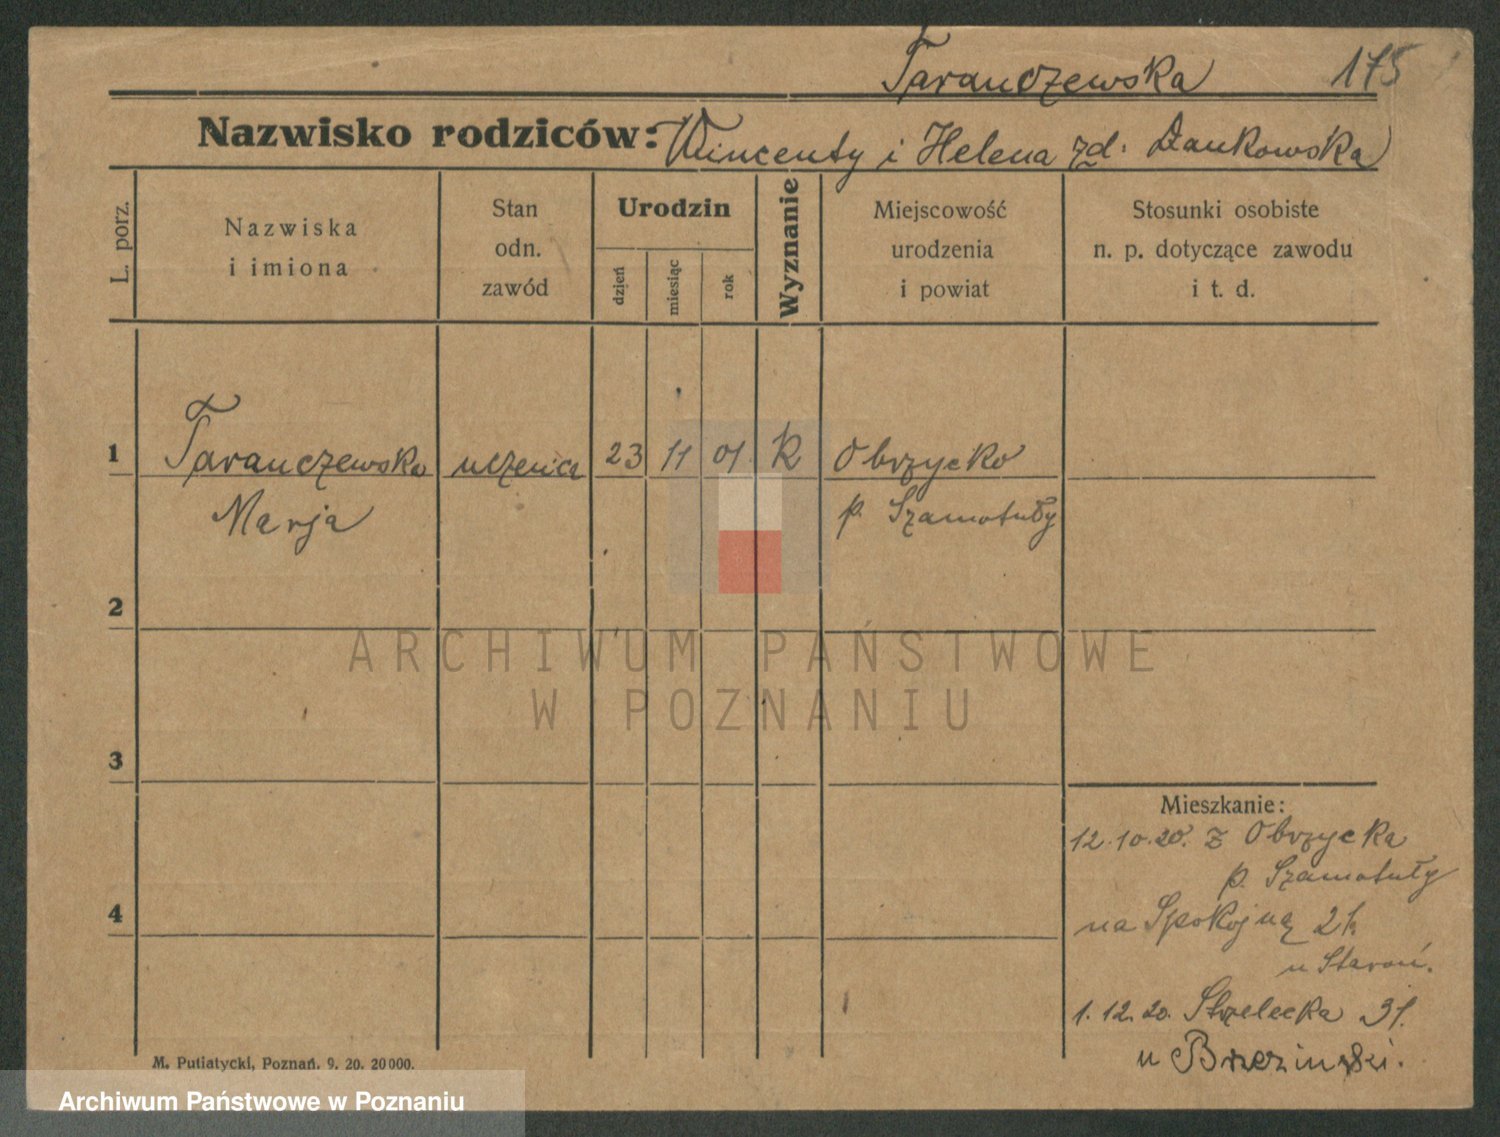 Taranczewska 175
Nazwisko rodziców: Wincenty i Helena zd. Dankowska
L. porz.
Nazwiska
i imiona
Stan
odn.
zawód
Urodzin
dzień
miesiąc
rok
Wyznanie
Miejscowość
urodzenia
i powiat
Stosunki osobiste
n. p. dotyczące zawodu
i t. d.
1 Taranczewska uczenica 23 11 01 K Obrzycko
Marja p. Szamotuły
2
ARCHIWUM PAŃSTWOWE
W POZNANIU
3
Mieszkanie:
12.10.20. z Obrzycka
p. Szamotuły
4
na Spokojną
u
1.12.20. Strzelecka 31.
u Brzezinski.
M. Putiatycki, Poznań. 9. 20. 20000.
Archiwum Państwowe w Poznaniu